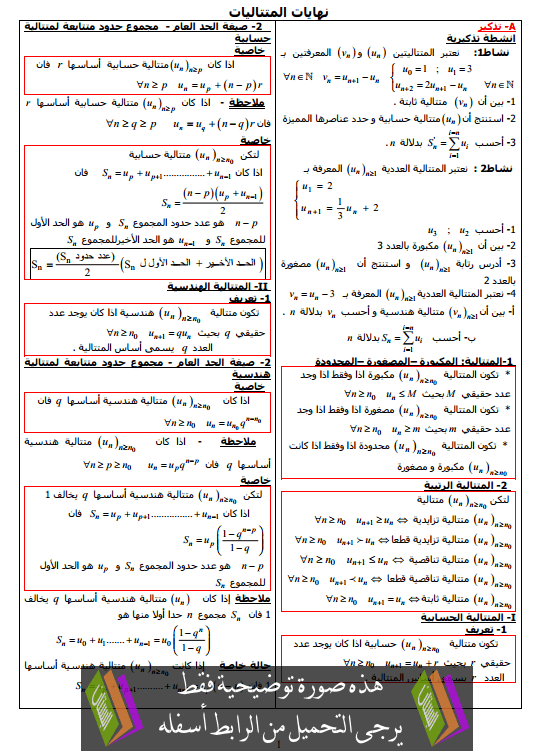 نهايات المتتاليات
A- تذكير
انشطة تذكيرية
نشاط1: نعتبر المتتاليتين (u_n) و (v_n) المعرفتين بـ
∀n∈ℕ v_n = u_{n+1} − u_n { u_0 = 1 ; u_1 = 3
u_{n+2} = 2u_{n+1} − u_n ∀n∈ℕ
1- بين أن (v_n) متتالية ثابتة .
2- استنتج أن (u_n) متتالية حسابية و حدد عناصرها المميزة
3- أحسب S'_n = Σ_{i=1}^{i=n} u_i بدلالة n.
نشاط2 : نعتبر المتتالية العددية (u_n)_{n≥1} المعرفة بـ
{ u_1 = 2
u_{n+1} = 1/3 u_n + 2
1- أحسب u_2 ; u_3
2- بين أن (u_n)_{n≥1} مكبورة بالعدد 3
3- أدرس رتابة (u_n)_{n≥1} و استنتج أن (u_n)_{n≥1} مصغورة
بالعدد 2
4- نعتبر المتتالية العددية (u_n)_{n≥1} المعرفة بـ v_n = u_n − 3
أ- بين أن (v_n)_{n≥1} متتالية هندسية و أحسب v_n بدلالة n .
ب- أحسب S_n = Σ_{i=1}^{i=n} u_i بدلالة n
1-المتتالية: المكبورة –المصغورة –المحدودة
* تكون المتتالية (u_n)_{n≥n_0} مكبورة اذا وفقط اذا وجد
عدد حقيقي M بحيث ∀n≥n_0 u_n ≤ M
* تكون المتتالية (u_n)_{n≥n_0} مصغورة اذا وفقط اذا وجد
عدد حقيقي m بحيث ∀n≥n_0 u_n ≥ m
* تكون المتتالية (u_n)_{n≥n_0} محدودة اذا وفقط اذا كانت
(u_n)_{n≥n_0} مكبورة و مصغورة
2- المتتالية الرتيبة
لتكن (u_n)_{n≥n_0} متتالية
(u_n)_{n≥n_0} متتالية تزايدية ⇔ ∀n≥n_0 u_{n+1} ≥ u_n
(u_n)_{n≥n_0} متتالية تزايدية قطعا ⇔ ∀n≥n_0 u_{n+1} ≻ u_n
(u_n)_{n≥n_0} متتالية تناقصية ⇔ ∀n≥n_0 u_{n+1} ≤ u_n
(u_n)_{n≥n_0} متتالية تناقصية قطعا ⇔ ∀n≥n_0 u_{n+1} ≺ u_n
(u_n)_{n≥n_0} متتالية ثابتة ⇔ ∀n≥n_0 u_{n+1} = u_n
I- المتتالية الحسابية
1- تعريف
تكون متتالية (u_n)_{n≥n_0} حسابية اذا كان يوجد عدد
حقيقي r بحيث ∀n≥n_0 u_{n+1} = u_n + r
العدد r
2- صيغة الحد العام - مجموع حدود متتابعة لمتتالية
حسابية
خاصية
اذا كان (u_n)_{n≥p} متتالية حسابية أساسها r فان
∀n≥p u_n = u_p + (n−p)r
ملاحظة - اذا كان (u_n)_{n≥p} متتالية حسابية أساسها r
فان ∀n≥q≥p u_n = u_q + (n−q)r
خاصية
لتكن (u_n)_{n≥n_0} متتالية حسابية
اذا كان S_n = u_p + u_{p+1}...............+ u_{n−1} فان
S_n = (n−p)(u_p + u_{n−1}) / 2
n−p هو عدد حدود المجموع S_n و u_p هو الحد الأول
للمجموع S_n و u_{n−1} هو الحد الأخير للمجموع S_n
S_n = (عدد حدود S_n) / 2 ( الحد الأخير + الحد الأول ل S_n)
II- المتتالية الهندسية
1- تعريف
تكون متتالية (u_n)_{n≥n_0} هندسية اذا كان يوجد عدد
حقيقي q بحيث ∀n≥n_0 u_{n+1} = qu_n
العدد q يسمى أساس المتتالية .
2- صيغة الحد العام - مجموع حدود متتابعة لمتتالية
هندسية
خاصية
اذا كان (u_n)_{n≥n_0} متتالية هندسية أساسها q فان
∀n≥n_0 u_n = u_{n_0} q^{n−n_0}
ملاحظة - اذا كان (u_n)_{n≥n_0} متتالية هندسية
أساسها q فان ∀n≥p≥n_0 u_n = u_p q^{n−p}
خاصية
لتكن (u_n)_{n≥n_0} متتالية هندسية أساسها q يخالف 1
اذا كان S_n = u_p + u_{p+1}...............+ u_{n−1} فان
S_n = u_p ( (1−q^{n−p}) / (1−q) )
n−p هو عدد حدود المجموع S_n و u_p هو الحد الأول
للمجموع S_n
ملاحظة إذا كان (u_n) متتالية هندسية أساسها q يخالف
1 فان S_n مجموع n حدا أولا منها هو
S_n = u_0 + u_1.......+ u_{n−1} = u_0 ( (1−q^n) / (1−q) )
حالة خاصة إذا كانت (u_n)_{n≥n_0} متتالية هندسية أساسها
هذه صورة توضيحية فقط
يرجى التحميل من الرابط أسفله
1